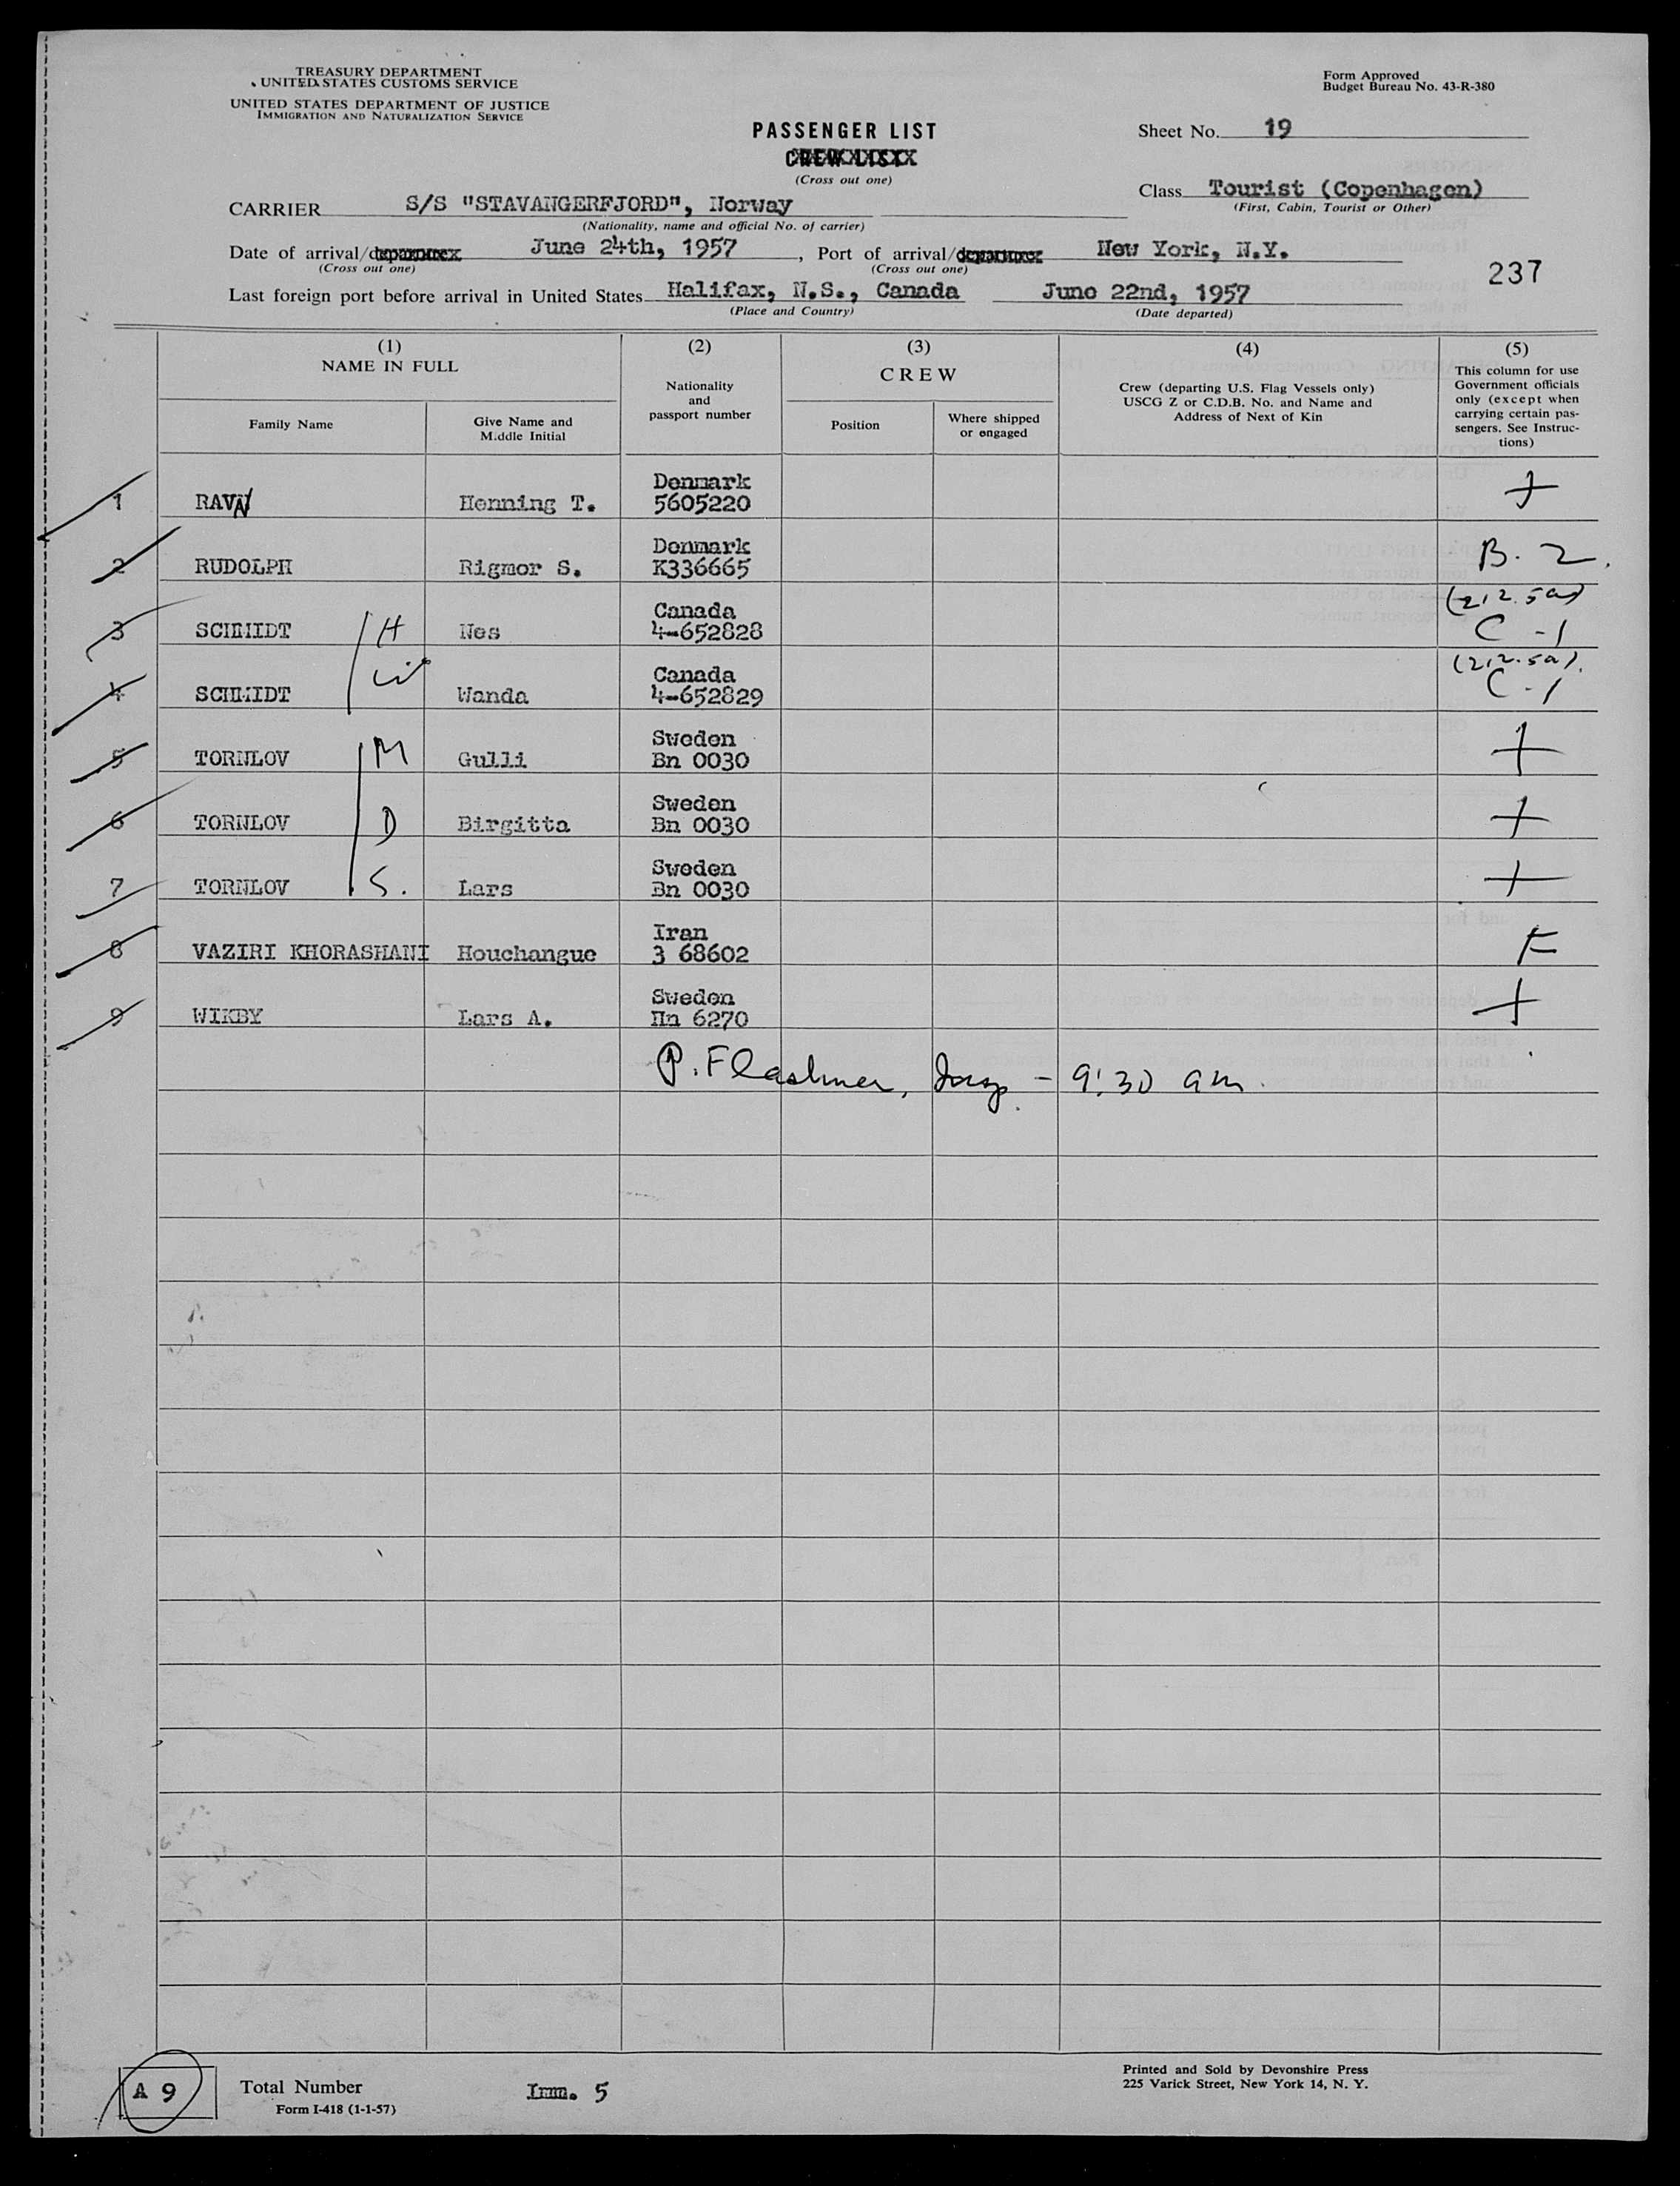 TREASURY DEPARTMENT
UNITED STATES CUSTOMS SERVICE
UNITED STATES DEPARTMENT OF JUSTICE
IMMIGRATION AND NATURALIZATION SERVICE
Form Approved
Budget Bureau No. 43-R-380
PASSENGER LIST
CREW LIST
(Cross out one)
Sheet No. 19
Class Tourist (Copenhagen)
(First, Cabin, Tourist or Other)
CARRIER S/S "STAVANGERFJORD", Norway
(Nationality, name and official No. of carrier)
Date of arrival/departure June 24th, 1957, Port of arrival/departure New York, N.Y.
(Cross out one) (Cross out one)
237
Last foreign port before arrival in United States Halifax, N.S., Canada June 22nd, 1957
(Place and Country) (Date departed)
(1) (2) (3) (4) (5)
NAME IN FULL
Family Name
Give Name and
Middle Initial
Nationality
and
passport number
CREW
Position
Where shipped
or engaged
Crew (departing U.S. Flag Vessels only)
USCG Z or C.D.B. No. and Name and
Address of Next of Kin
This column for use
Government officials
only (except when
carrying certain pas-
sengers. See Instruc-
tions)
Denmark
1 RAVN Henning T. 5605220 +
Denmark
2 RUDOLPH Rigmor S. K336665 B. 2
Canada (212.5a)
3 SCHMIDT H Nes 4-652828 C-1
Canada (212.5a)
4 SCHMIDT W Wanda 4-652829 C-1
Sweden
5 TORNLOV M Gulli Bn 0030 +
Sweden
6 TORNLOV D Birgitta Bn 0030 +
Sweden
7 TORNLOV S. Lars Bn 0030 +
Iran
8 VAZIRI KHORASHANI Houchangue 3 68602 F
Sweden
9 WIKBY Lars A. Hn 6270 +
P. Flashner, Insp - 9:30 am.
A 9
Total Number
Form I-418 (1-1-57)
Imm. 5
Printed and Sold by Devonshire Press
225 Varick Street, New York 14, N. Y.